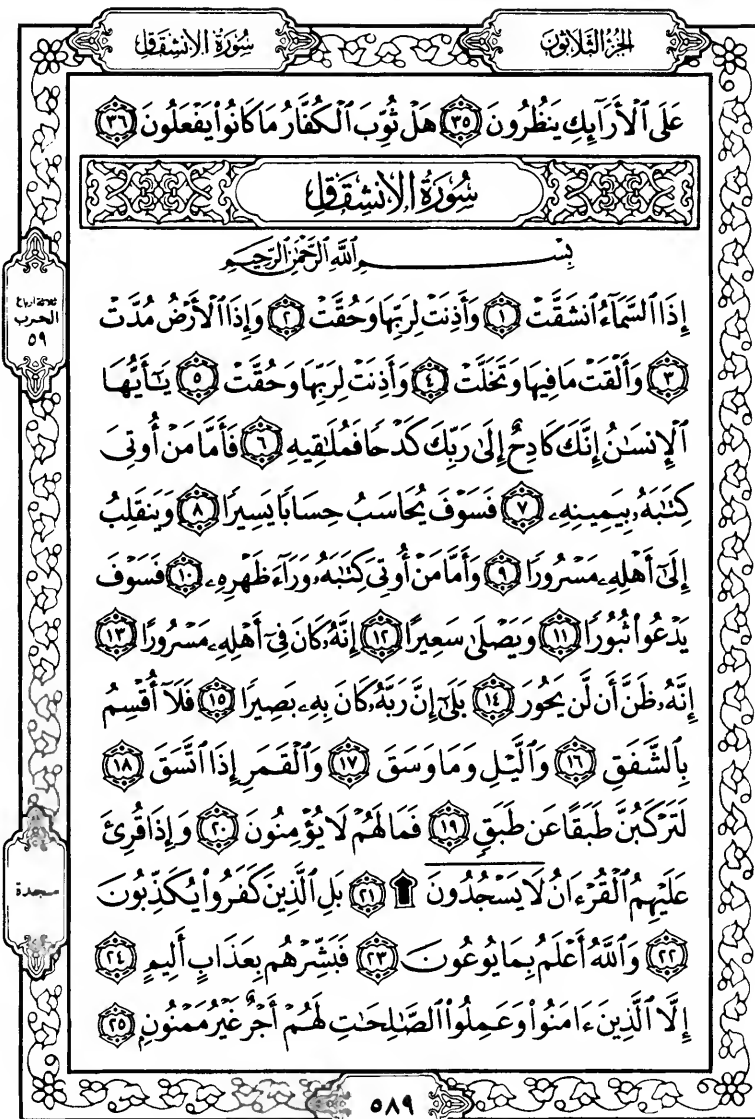 الجزء الثلاثون
سورة الانشقاق
عَلَى ٱلْأَرَآئِكِ يَنظُرُونَ ٣٥ هَلْ ثُوِّبَ ٱلْكُفَّارُ مَا كَانُوا۟ يَفْعَلُونَ ٣٦
سُورَةُ الانشِقَاقِ
بِسْمِ ٱللَّهِ ٱلرَّحْمَٰنِ ٱلرَّحِيمِ
إِذَا ٱلسَّمَآءُ ٱنشَقَّتْ ١ وَأَذِنَتْ لِرَبِّهَا وَحُقَّتْ ٢ وَإِذَا ٱلْأَرْضُ مُدَّتْ
٣ وَأَلْقَتْ مَا فِيهَا وَتَخَلَّتْ ٤ وَأَذِنَتْ لِرَبِّهَا وَحُقَّتْ ٥ يَٰٓأَيُّهَا
ٱلْإِنسَٰنُ إِنَّكَ كَادِحٌ إِلَىٰ رَبِّكَ كَدْحًا فَمُلَٰقِيهِ ٦ فَأَمَّا مَنْ أُوتِىَ
كِتَٰبَهُۥ بِيَمِينِهِۦ ٧ فَسَوْفَ يُحَاسَبُ حِسَابًا يَسِيرًا ٨ وَيَنقَلِبُ
إِلَىٰٓ أَهْلِهِۦ مَسْرُورًا ٩ وَأَمَّا مَنْ أُوتِىَ كِتَٰبَهُۥ وَرَآءَ ظَهْرِهِۦ ١٠ فَسَوْفَ
يَدْعُوا۟ ثُبُورًا ١١ وَيَصْلَىٰ سَعِيرًا ١٢ إِنَّهُۥ كَانَ فِىٓ أَهْلِهِۦ مَسْرُورًا ١٣
إِنَّهُۥ ظَنَّ أَن لَّن يَحُورَ ١٤ بَلَىٰٓ إِنَّ رَبَّهُۥ كَانَ بِهِۦ بَصِيرًا ١٥ فَلَآ أُقْسِمُ
بِٱلشَّفَقِ ١٦ وَٱلَّيْلِ وَمَا وَسَقَ ١٧ وَٱلْقَمَرِ إِذَا ٱتَّسَقَ ١٨
لَتَرْكَبُنَّ طَبَقًا عَن طَبَقٍ ١٩ فَمَا لَهُمْ لَا يُؤْمِنُونَ ٢٠ وَإِذَا قُرِئَ
عَلَيْهِمُ ٱلْقُرْءَانُ لَا يَسْجُدُونَ ۩ ٢١ بَلِ ٱلَّذِينَ كَفَرُوا۟ يُكَذِّبُونَ
٢٢ وَٱللَّهُ أَعْلَمُ بِمَا يُوعُونَ ٢٣ فَبَشِّرْهُم بِعَذَابٍ أَلِيمٍ ٢٤
إِلَّا ٱلَّذِينَ ءَامَنُوا۟ وَعَمِلُوا۟ ٱلصَّٰلِحَٰتِ لَهُمْ أَجْرٌ غَيْرُ مَمْنُونٍ ٢٥
ثلاثة أرباع
الحزب
٥٩
سجدة
٥٨٩